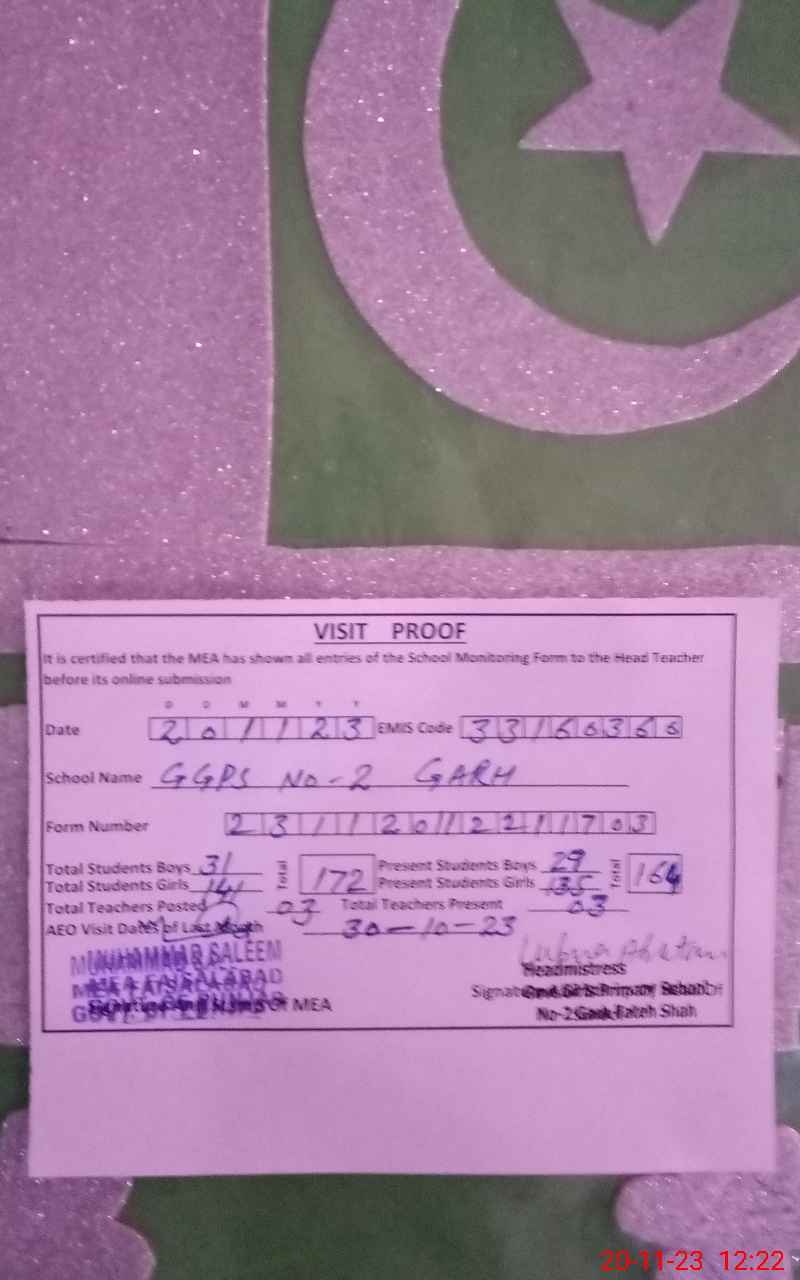 VISIT PROOF
It is certified that the MEA has shown all entries of the School Monitoring Form to the Head Teacher
before its online submission
D D M M Y Y
Date 201123 EMIS Code 33160366
School Name GGPS No-2 GARH
Form Number 231120112211703
Total Students Boys 31 Total 172 Present Students Boys 29 Total 164
Total Students Girls 141 Present Students Girls 135
Total Teachers Posted 03 Total Teachers Present 03
AEO Visit Dates of Last Month 30-10-23
MUHAMMAD SALEEM
MEA FAISALABAD
GOVT. OF
of MEA
Headmistress
Signature Govt. Girls Primary School
No-2 Garh Fateh Shah
20-11-23 12:22